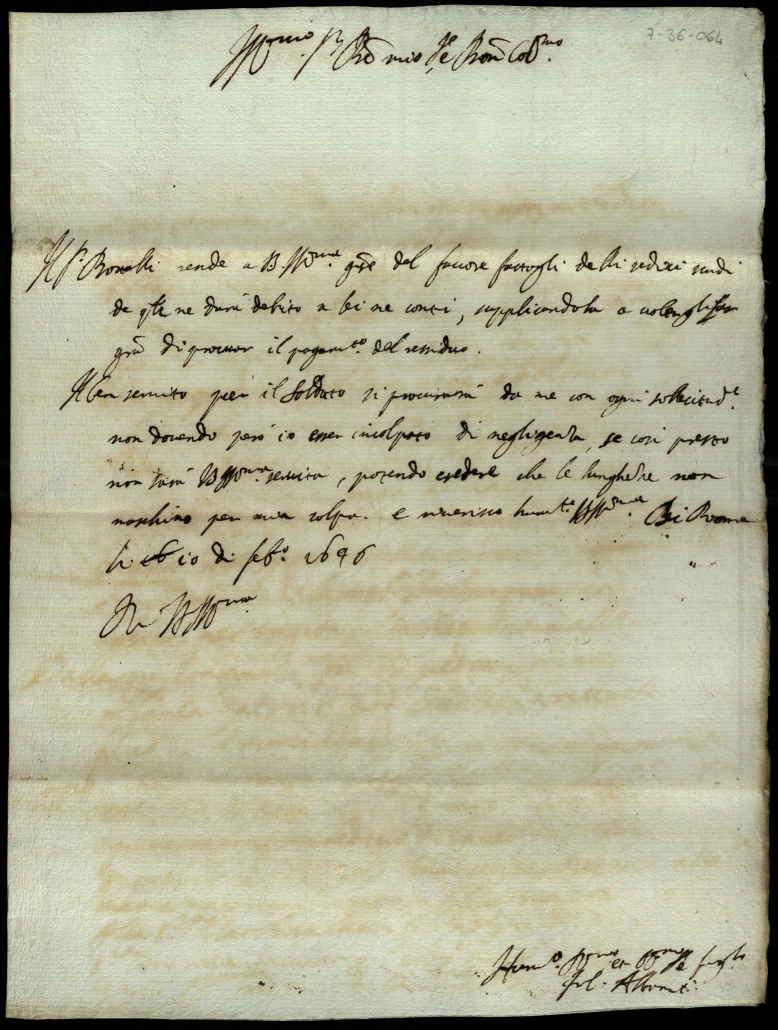 7-36-064
Ill.mo Sig.r mio Sig.re e Pron Col.mo
Il S.r Bonelli rende a V.S. Ill.ma grẽ del favore fattogli delli sedici scudi
de q̃li ne darà debito a lei ne conti, supplicandola a volergli far
grã di procurar il pagam.to del residuo.
servito per il Soldato si procurarà da me con ogni sollecitud.e
non dovendo però io esser incolpato di negligenza, se così presto
non sarà V.S. Ill.ma servita, potendo credere che le lunghezze non
naschino per mia colpa. e riverisco hum.te V.S. Ill.ma Di Roma
li 10 di feb.o 1646
Di V.S. Ill.ma
Hum.o et Ob.mo